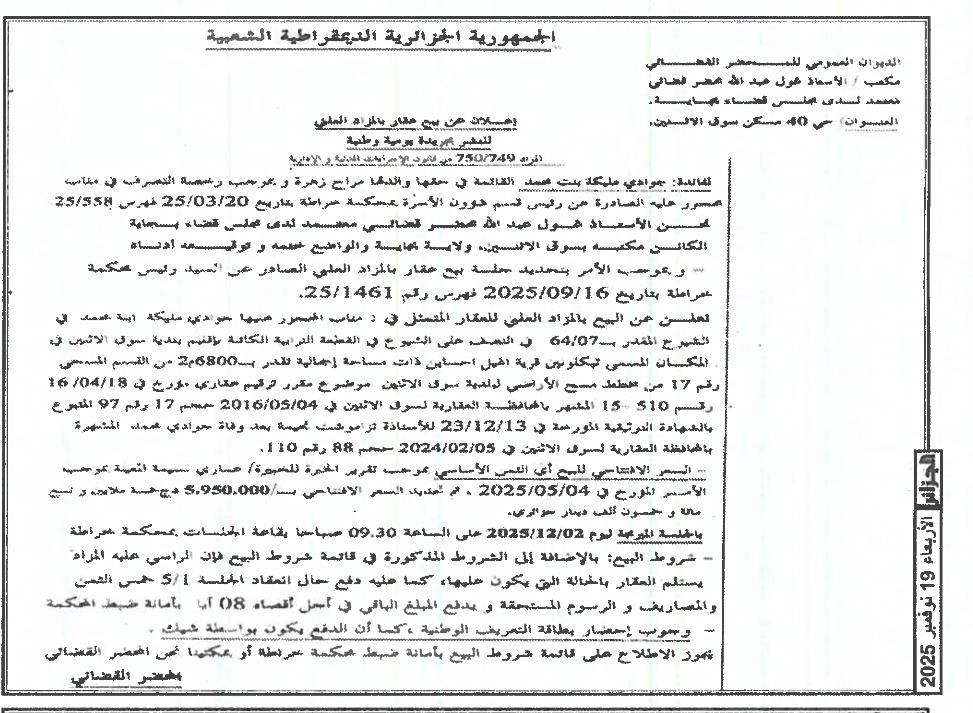 الجمهورية الجزائرية الديمقراطية الشعبية
الديوان العمومي للمحضر القضائي
مكتب / الأستاذ غول عبد الله محضر قضائي
معتمد لدى مجلس قضاء بجاية.
العنوان/ حي 40 مسكن سوق الاثنين.
إعلان عن بيع عقار بالمزاد العلني
للنشر بجريدة يومية وطنية
المواد 750/749 من قانون الإجراءات المدنية و الإدارية
لفائدة: جوادي مليكة بنت محمد القائمة في حقها والدتها مراح زهرة و بموجب رخصة التصرف في مناب
محجور عليه الصادرة عن رئيس قسم شؤون الأسرة بمحكمة خراطة بتاريخ 25/03/20 فهرس 25/558
نحن الأستاذ غول عبد الله محضر قضائي معتمد لدى مجلس قضاء بجاية
الكائن مكتبه بسوق الاثنين، ولاية بجاية والواضع ختمه و توقيعه أدناه
– و بموجب الأمر بتحديد جلسة بيع عقار بالمزاد العلني الصادر عن السيد رئيس محكمة
خراطة بتاريخ 2025/09/16 فهرس رقم 25/1461.
نعلن عن البيع بالمزاد العلني للعقار المتمثل في : مناب المحجور عليها جوادي مليكة ابنة محمد في
الشيوع المقدر بـ 64/07 في النصف على الشيوع في القطعة الترابية الكائنة بإقليم بلدية سوق الاثنين في
المكان المسمى تيكلوتين قرية اغيل احساين ذات مساحة إجمالية تقدر بـ 6800م2 من القسم المسمى
رقم 17 من مخطط مسح الأراضي لبلدية سوق الاثنين موضوع مقرر ترقيم عقاري مؤرخ في 16/04/18
رقم 510 – 15 المشهر بالمحافظة العقارية لسوق الاثنين في 2016/05/04 حجم 17 رقم 97 المتبوع
بالشهادة التوثيقية المؤرخة في 23/12/13 للأستاذة نعيمة بعد وفاة جوادي محمد المشهرة
بالمحافظة العقارية لسوق الاثنين في 2024/02/05 حجم 88 رقم 110.
– السعر الافتتاحي للبيع أي الثمن الأساسي بموجب تقرير الخبرة للخبيرة/ عماري نسيمة المعينة بموجب
الأمر المؤرخ في 2025/05/04 ، تم تحديد السعر الافتتاحي بـ/5.950.000 دج خمسة ملايين و تسع
مائة و خمسون ألف دينار جزائري.
بالجلسة المبرمجة ليوم 2025/12/02 على الساعة 09.30 صباحا بقاعة الجلسات بمحكمة خراطة
– شروط البيع: بالإضافة إلى الشروط المذكورة في قائمة شروط البيع فإن الراسي عليه المزاد
يستلم العقار بالحالة التي يكون عليها، كما عليه دفع حال انعقاد الجلسة 5/1 خمس الثمن
والمصاريف و الرسوم المستحقة و يدفع المبلغ الباقي في أجل أقصاه 08 أيام بأمانة ضبط المحكمة
– وجوب إحضار بطاقة التعريف الوطنية ، كما أن الدفع يكون بواسطة شيك .
يجوز الاطلاع على قائمة شروط البيع بأمانة ضبط محكمة خراطة أو بمكتبنا نحن المحضر القضائي
المحضر القضائي
الجزائر الأربعاء 19 نوفمبر 2025